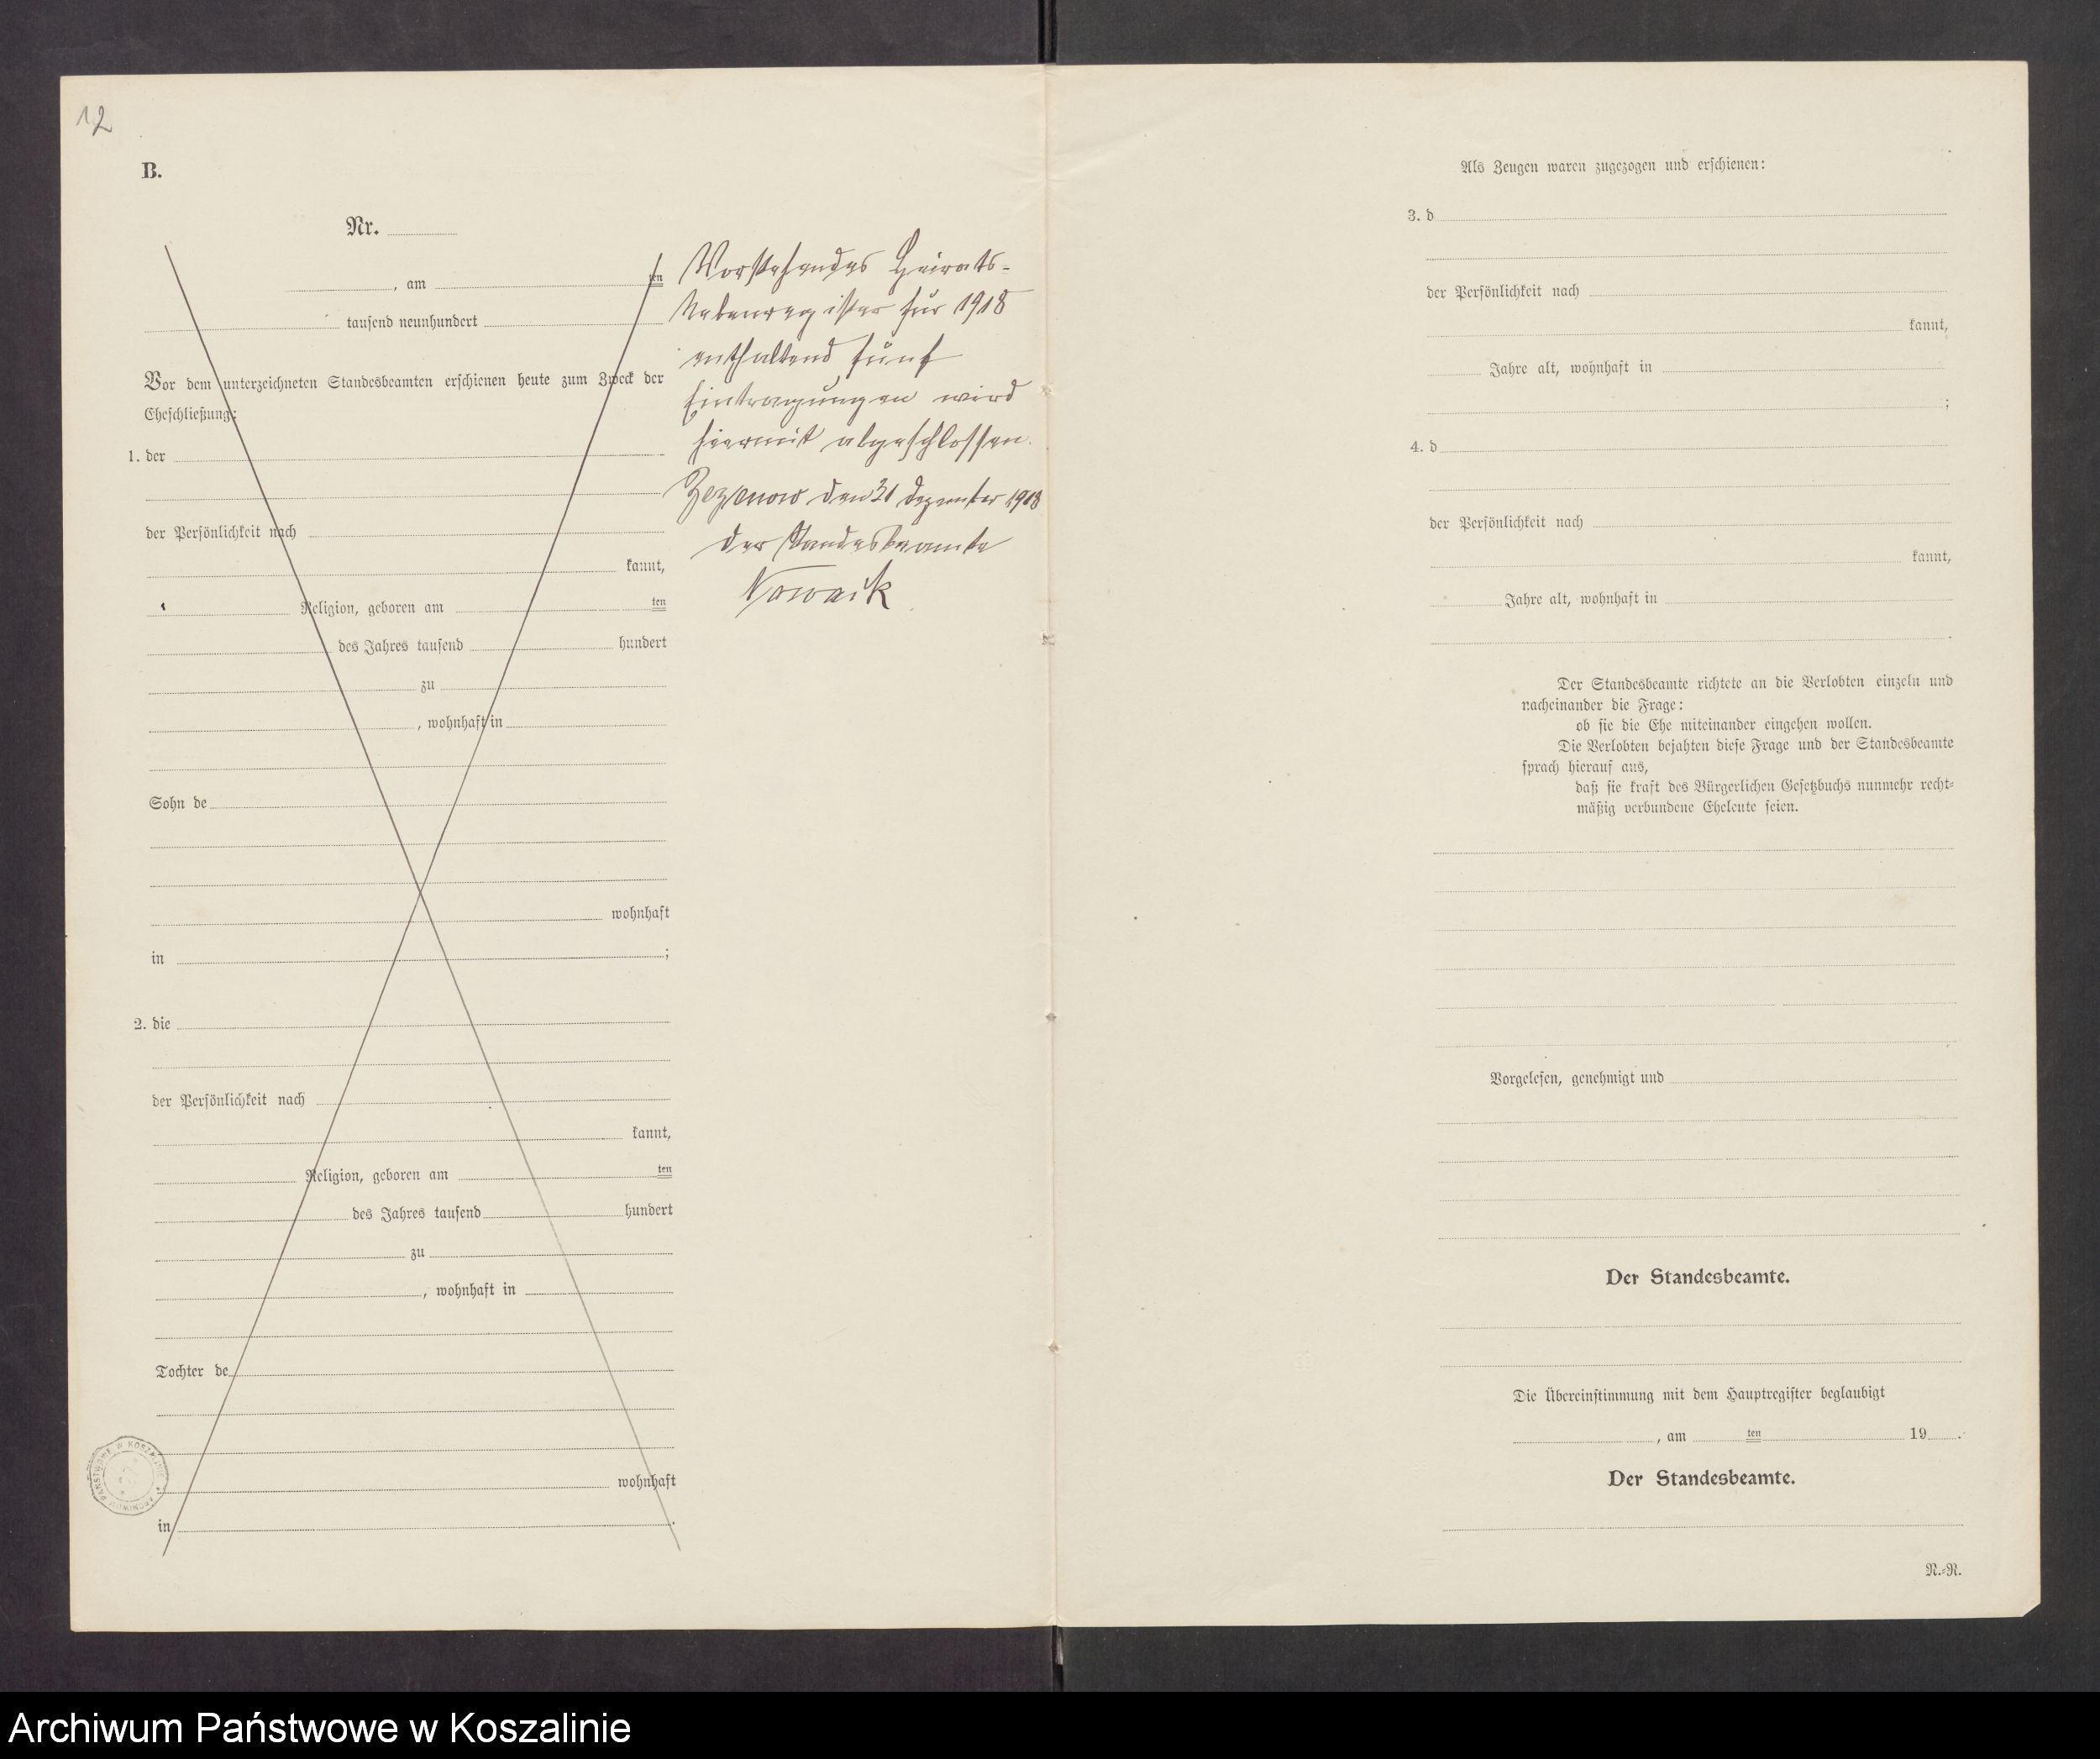 12
B.
Nr.
, am ten
tausend neunhundert
Vor dem unterzeichneten Standesbeamten erschienen heute zum Zweck der
Eheschließung:
1. der
der Persönlichkeit nach
kannt,
Religion, geboren am ten
des Jahres tausend hundert
zu
, wohnhaft in
Sohn de
wohnhaft
in ;
2. die
der Persönlichkeit nach
kannt,
Religion, geboren am ten
des Jahres tausend hundert
zu
, wohnhaft in
Tochter de
wohnhaft
in .
Vorstehendes Heirats-
Nebenregister für 1918
enthaltend fünf
Eintragungen wird
hiermit abgeschlossen.
Zezenow den 31 Dezember 1918
Der Standesbeamte
Nowack
ARCHIWUM PAŃSTWOWE W KOSZALINIE
Als Zeugen waren zugezogen und erschienen:
3. d
der Persönlichkeit nach
kannt,
Jahre alt, wohnhaft in
;
4. d
der Persönlichkeit nach
kannt,
Jahre alt, wohnhaft in
.
Der Standesbeamte richtete an die Verlobten einzeln und
nacheinander die Frage:
ob sie die Ehe miteinander eingehen wollen.
Die Verlobten bejahten diese Frage und der Standesbeamte
sprach hierauf aus,
daß sie kraft des Bürgerlichen Gesetzbuchs nunmehr recht-
mäßig verbundene Eheleute seien.
Vorgelesen, genehmigt und
Der Standesbeamte.
Die Übereinstimmung mit dem Hauptregister beglaubigt
, am ten 19 .
Der Standesbeamte.
N.-R.
Archiwum Państwowe w Koszalinie